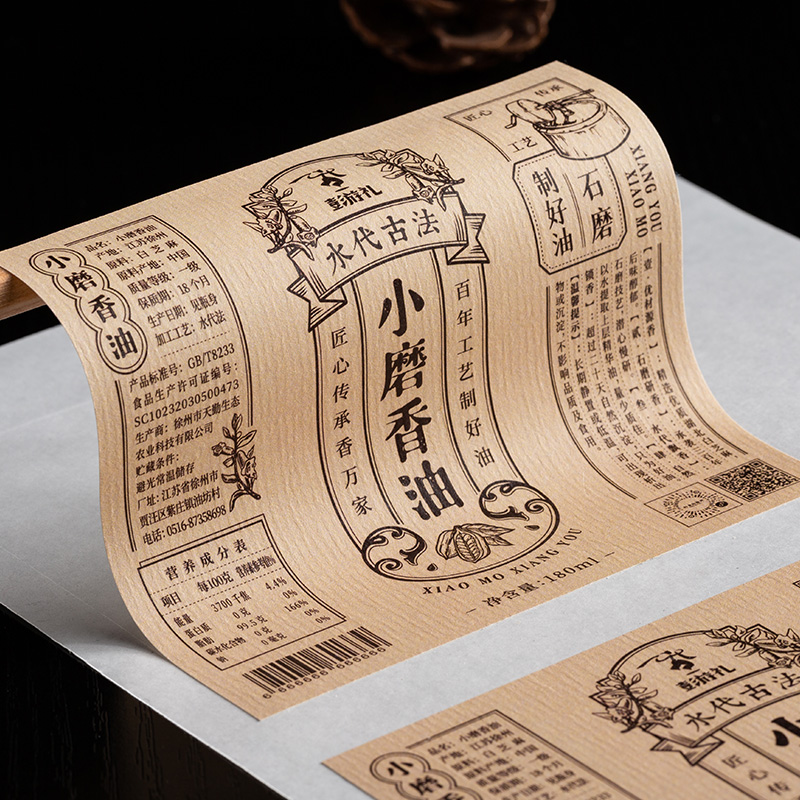 小磨香油
品名：小磨香油
产地：江苏徐州
原料：白芝麻
原料产地：中国
质量等级：一级
保质期：18个月
生产日期：见瓶身
加工工艺：水代法
产品标准号：GB/T8233
食品生产许可证编号：
SC10232030500473
生产商：徐州市天勤生态
农业科技有限公司
贮藏条件：
避光常温储存
厂址：江苏省徐州市
贾汪区紫庄镇油坊村
电话：0516-87358698
营养成分表
项目 每100克 营养素参考值%
能量 3700千焦 4.4%
蛋白质 0克 0%
脂肪 99.5克 166%
碳水化合物 0克 0%
钠 0毫克 0%
6 666666 666666
彭游礼
水代古法
百年工艺制好油
小磨香油
匠心传承香万家
XIAO MO XIANG YOU
- 净含量:180ml -
匠心 传承
工艺
石磨
制好油
XIANG YOU
XIAO MO
【温馨提示】：长期静置或低温
物或沉淀，不影响品质及食用
彭游礼
水代古法
小
匠
小磨
品名：小磨香油
产地：江苏徐州